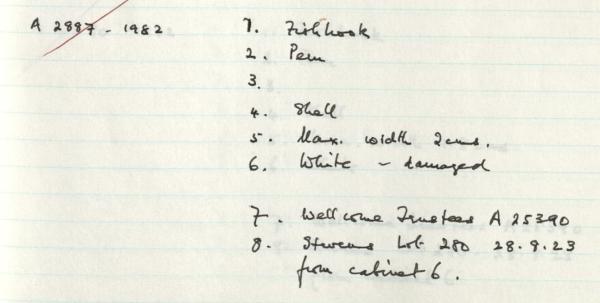 A 2887 - 1982
1. Fishhook
2. Peru
3.
4. Shell
5. Max. width 2cms.
6. White - damaged
7. Wellcome Trustees A 25390
8. Stevens Lot 280 28.9.23
from cabinet 6.